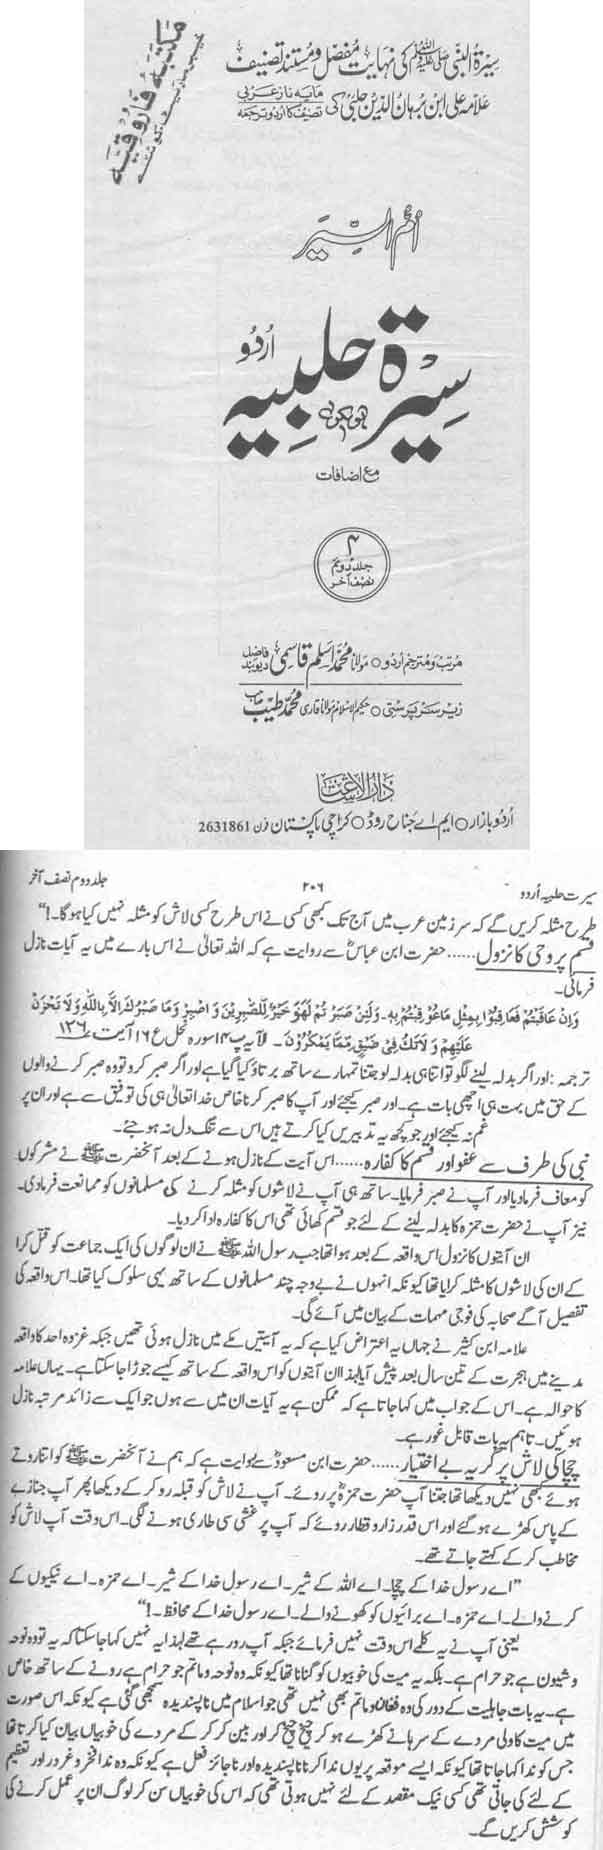 مکتبہ فاروقیہ
سیرۃ النبی ﷺ کی نہایت مفصل و مستند تصنیف
علامہ علی ابن برہان الدین حلبی کی مایہ ناز عربی تصنیف کا اردو ترجمہ
اُمّ السِّیَر
سِیْرۃ حلبیہ اُردُو
مع اضافات
۴
جلد دوم
نصف آخر
مرتب و مترجم اردو ○ مولانا محمد اسلم قاسمی فاضل دیوبند
زیر سرپرستی ○ حکیم الاسلام مولانا قاری محمد طیب صاحب
دارالاشاعت
اُردو بازار ○ ایم اے جناح روڈ ○ کراچی پاکستان فون 2631861
سیرت حلبیہ اُردو ۲۰۶ جلد دوم نصف آخر
طرح مثلہ کریں گے کہ سرزمین عرب میں آج تک کبھی کسی نے اس طرح کسی لاش کو مثلہ نہیں کیا ہوگا۔!"
قسم پر وحی کا نزول...... حضرت ابن عباسؓ سے روایت ہے کہ اللہ تعالیٰ نے اس بارے میں یہ آیات نازل
فرمائی۔
وَاِنْ عَاقَبْتُمْ فَعَاقِبُوْا بِمِثْلِ مَاعُوْقِبْتُمْ بِهٖ۔ وَلَئِنْ صَبَرْ تُمْ لَهُوَ خَيْرٌ لِّلصّٰبِرِيْنَ وَ اصْبِرْ وَمَا صَبْرُكَ اِلاَّ بِاللّٰهِ وَلَا تَحْزَنْ
عَلَيْهِمْ وَلَا تَكُ فِىْ ضَيْقٍ مِّمَّا يَمْكُرُوْنَ ۔ لآیہ پ ۱۴ سورہ نحل ع ۱۶ آیت ۱۳۶
ترجمہ: اور اگر بدلہ لینے لگو تو اتنا ہی بدلہ لو جتنا تمہارے ساتھ برتاؤ کیا گیا ہے اور اگر صبر کرو تو وہ صبر کرنے والوں
کے حق میں بہت ہی اچھی بات ہے۔ اور صبر کیجئے اور آپ کا صبر کرنا خاص خدا تعالیٰ ہی کی توفیق سے ہے اور ان پر
غم نہ کیجئے اور جو کچھ یہ تدبیریں کیا کرتے ہیں اس سے تنگ دل نہ ہو جئے۔
نبی کی طرف سے عفو اور قسم کا کفارہ...... اس آیت کے نازل ہونے کے بعد آنحضرت ﷺ نے مشرکوں
کو معاف فرمادیا اور آپ نے صبر فرمایا۔ ساتھ ہی آپ نے لاشوں کو مثلہ کرنے کی مسلمانوں کو ممانعت فرمادی۔
نیز آپ نے حضرت حمزہ کا بدلہ لینے کے لئے جو قسم کھائی تھی اس کا کفارہ ادا کر دیا۔
ان آیتوں کا نزول اس واقعہ کے بعد ہوا تھا جب رسول اللہ ﷺ نے ان لوگوں کی ایک جماعت کو قتل کرا
کے ان کی لاشوں کا مثلہ کرایا تھا کیونکہ انہوں نے بے وجہ چند مسلمانوں کے ساتھ یہی سلوک کیا تھا۔ اس واقعہ کی
تفصیل آگے صحابہ کی فوجی مہمات کے بیان میں آئے گی۔
علامہ ابن کثیر نے جہاں یہ اعتراض کیا ہے کہ یہ آیتیں مکے میں نازل ہوئی تھیں جبکہ غزوہ احد کا واقعہ
مدینے میں ہجرت کے تین سال بعد پیش آیا لہٰذا ان آیتوں کو اس واقعہ کے ساتھ کیسے جوڑا جاسکتا ہے۔ یہاں علامہ
کا حوالہ ہے۔ اس کے جواب میں کہا جاتا ہے کہ ممکن ہے یہ آیات ان میں سے ہوں جو ایک سے زائد مرتبہ نازل
ہوئیں۔ تاہم یہ بات قابل غور ہے۔
چچا کی لاش پر گریہ بے اختیار...... حضرت ابن مسعودؓ سے روایت ہے کہ ہم نے آنحضرت ﷺ کو اتنا روتے
ہوئے کبھی نہیں دیکھا تھا جتنا آپ حضرت حمزہؓ پر روئے۔ آپ نے لاش کو قبلہ رو کر کے دیکھا پھر آپ جنازے
کے پاس کھڑے ہوگئے اور اس قدر زار و قطار روئے کہ آپ پر غشی سی طاری ہونے لگی۔ اس وقت آپ لاش کو
مخاطب کر کے کہتے جاتے تھے۔
"اے رسول خدا کے چچا۔ اے اللہ کے شیر۔ اے رسول خدا کے شیر۔ اے حمزہ۔ اے نیکیوں کے
کرنے والے۔ اے حمزہ۔ اے برائیوں کو کھونے والے۔ اے رسول خدا کے محافظ۔!"
یعنی آپ نے یہ کلمے اس وقت نہیں فرمائے جبکہ آپ رو رہے تھے لہٰذا یہ نہیں کہا جاسکتا کہ یہ تو وہ نوحہ
و شیون ہے جو حرام ہے۔ بلکہ یہ میت کی خوبیوں کو گنانا تھا کیونکہ وہ نوحہ و ماتم جو حرام ہے رونے کے ساتھ خاص
ہے۔ یہ بات جاہلیت کے دور کی وہ فغان و ماتم بھی نہیں تھی جو اسلام میں ناپسندیدہ سمجھی گئی ہے کیونکہ اس صورت
میں میت کا ولی مردے کے سرہانے کھڑے ہو کر چیخ چیخ کر اور بین کر کر کے مردے کی خوبیاں بیان کیا کرتا تھا
جس کو ندا کہا جاتا تھا کیونکہ ایسے موقعہ پر یوں ندا کرنا ناپسندیدہ اور ناجائز فعل ہے کیونکہ وہ ندا فخر و غرور اور تعظیم
کے لئے کی جاتی تھی کسی نیک مقصد کے لئے نہیں ہوتی تھی کہ اس کی خوبیاں سن کر لوگ ان پر عمل کرنے کی
کوشش کریں گے۔